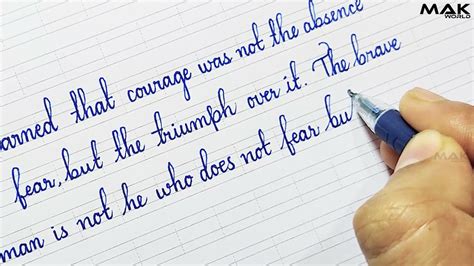 MAK
WORLD
arned that courage was not the absence
fear, but the triumph over it. The brave
man is not he who does not fear bu
MAK
WORLD